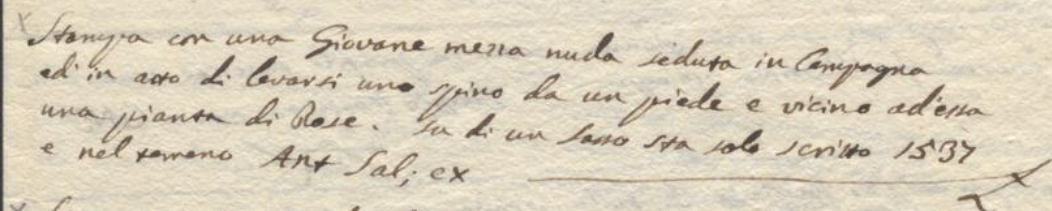 Stampa con una Giovane mezza nuda seduta in Campagna
ed in atto di levarsi uno spino da un piede e vicino ad'essa
una pianta di Rose. Su di un sasso sta solo scritto 1537
e nel terreno Ant Sal; ex